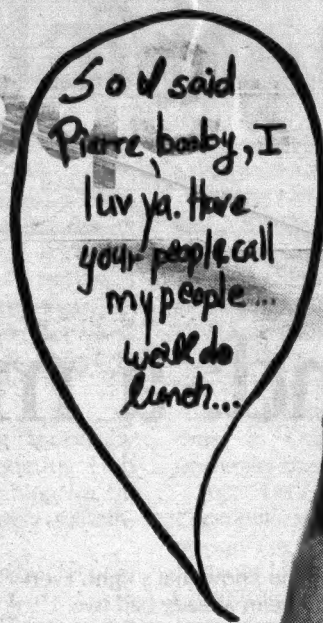 So I said
Pierre, booby, I
luv ya. Have
your people call
my people...
we'll do
lunch...